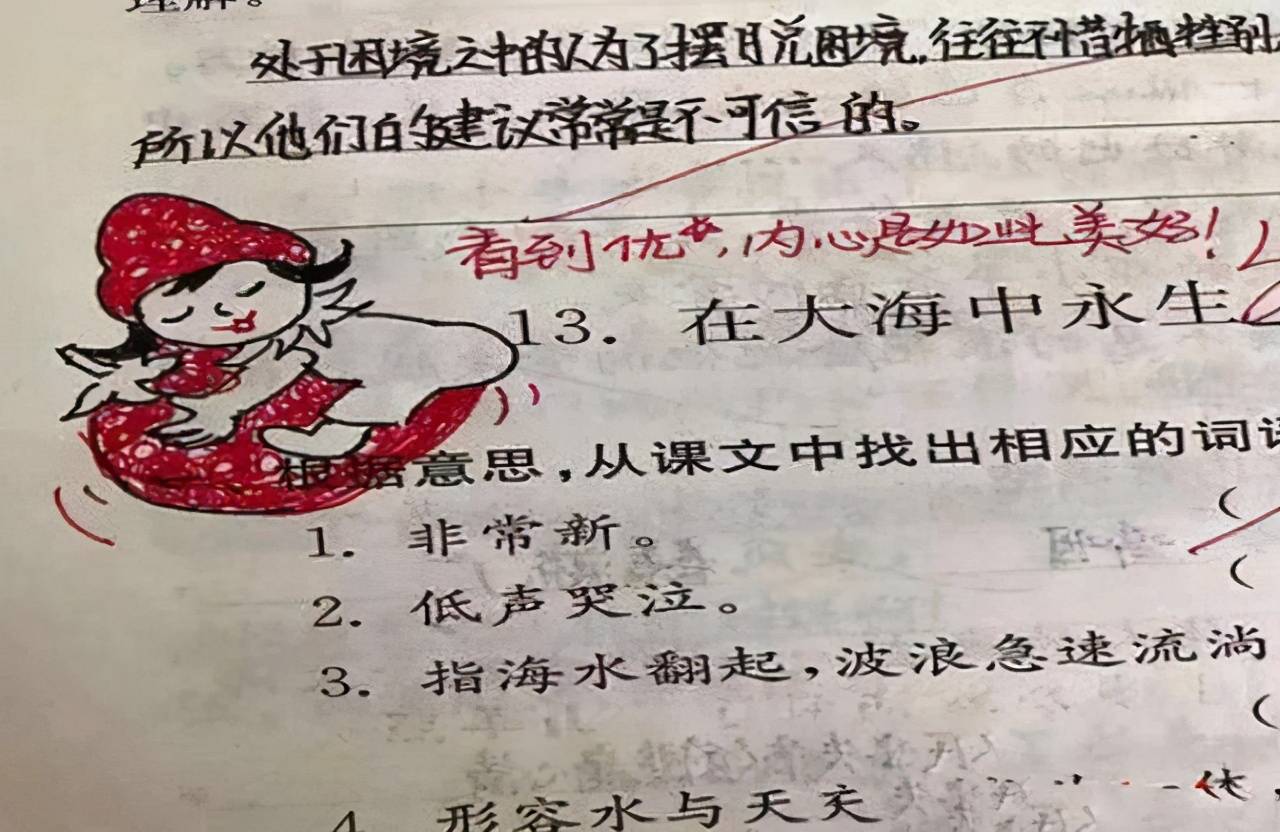 处于困境之中的人为了摆脱困境,往往不惜牺牲别
所以他们的建议常常是不可信的。
看到优*,内心是如此美好!
13. 在大海中永生
根据意思,从课文中找出相应的词语
1. 非常新。 (
2. 低声哭泣。 (
3. 指海水翻起,波浪急速流淌
(
4 形容水与天